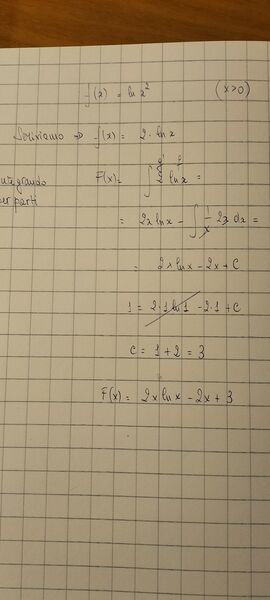 f(x) = ln x² (x>0)
Scriviamo => f(x) = 2·ln x
integrando per parti
F(x) = ∫ 2 ln x =
= 2x ln x - ∫ 1/x 2x dx =
= 2x ln x - 2x + C
1 = 2·1 ln 1 - 2·1 + C
C = 1 + 2 = 3
F(x) = 2x ln x - 2x + 3